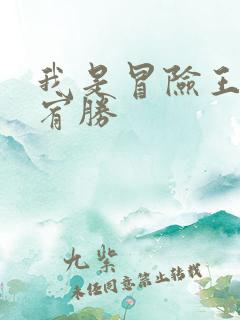 我是冒險王
宥勝
九柴
未经同意禁止转载